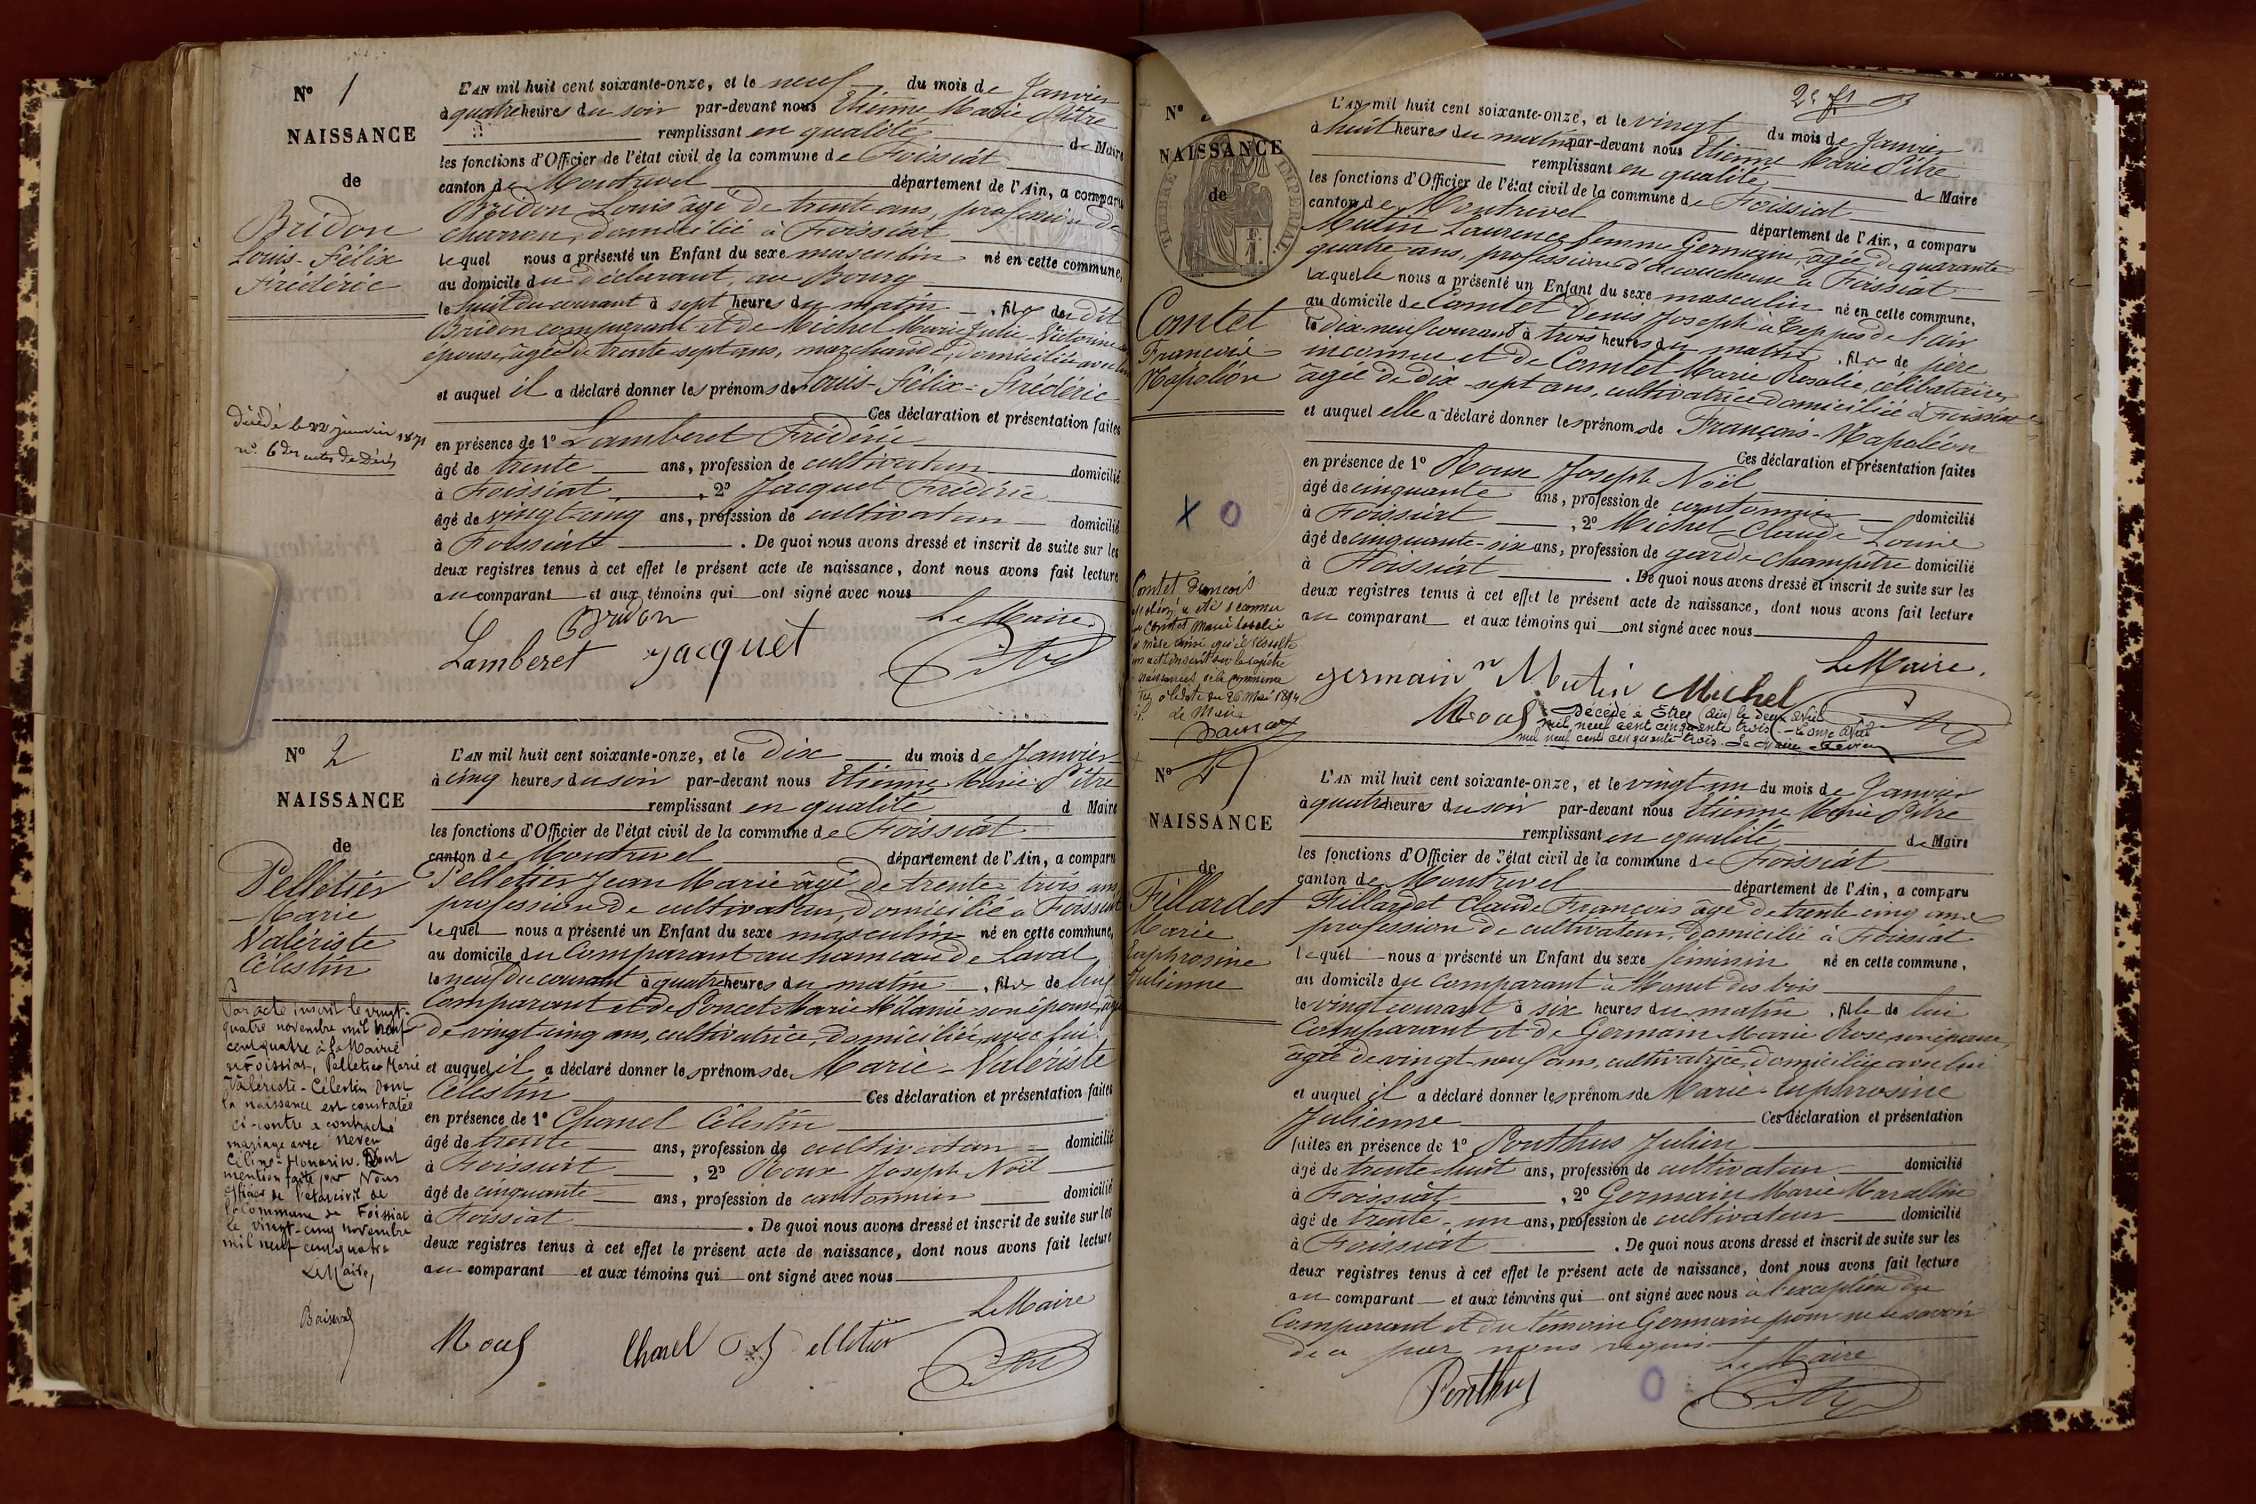 N° 1
NAISSANCE
de
Bridon
Louis-Félix
Frédéric
Décédé le 22 janvier 1871
n° 6 des actes de Décès
L'AN mil huit cent soixante-onze, et le neuf du mois de Janvier
à quatre heures du soir par-devant nous Etienne Marie Pitre
remplissant en qualité de Maire
les fonctions d'Officier de l'état civil de la commune de Foissiat
canton de Montrevel département de l'Ain, a comparu
Bridon Louis âgé de trente ans, profession de
charron, domicilié à Foissiat
lequel nous a présenté un Enfant du sexe masculin né en cette commune,
au domicile du déclarant, au Bourg
le huit du courant à sept heures du matin, fils du dit
Bridon comparant et de Michel Marie Julie Victorine
épouse, âgée de trente sept ans, marchande, domiciliée avec lui
et auquel il a déclaré donner les prénoms de Louis-Félix-Frédéric
Ces déclaration et présentation faites
en présence de 1° Lamberet Frédéric
âgé de trente ans, profession de cultivateur domicilié
à Foissiat, 2° Jacquet Frédéric
âgé de vingt-cinq ans, profession de cultivateur domicilié
à Foissiat. De quoi nous avons dressé et inscrit de suite sur les
deux registres tenus à cet effet le présent acte de naissance, dont nous avons fait lecture
au comparant et aux témoins qui ont signé avec nous
Bridon Le Maire
Lamberet Jacquet Pitre
N° 2
NAISSANCE
de
Pelletier
Marie
Valériste
Célestin
Par acte inscrit le vingt-
quatre novembre mil neuf
cent quatre à la Mairie
de Foissiat, Pelletier Marie
Valériste-Célestin dont
la naissance est constatée
ci-contre a contracté
mariage avec Neveu
Céline-Honorine. Dont
mention faite par Nous
officier de l'état civil de
la Commune de Foissiat
Le vingt-cinq novembre
mil neuf cent quatre
Le Maire,
L'AN mil huit cent soixante-onze, et le Dix du mois de Janvier
à cinq heures du soir par-devant nous Etienne Marie Pitre
remplissant en qualité d Maire
les fonctions d'Officier de l'état civil de la commune de Foissiat
canton de Montrevel département de l'Ain, a comparu
Pelletier Jean Marie âgé de trente-trois ans
profession de cultivateur, domicilié à Foissiat
lequel nous a présenté un Enfant du sexe masculin né en cette commune,
au domicile du Comparant au hameau de Laval
le neuf du courant à quatre heures du matin, fils de lui
Comparant et de Poncet Marie Mélanie son épouse, âgée
de vingt cinq ans, cultivatrice, domiciliée avec lui
et auquel il a déclaré donner les prénoms de Marie-Valériste
Célestin Ces déclaration et présentation faites
en présence de 1° Chanel Célestin
âgé de trente ans, profession de cultivateur domicilié
à Foissiat, 2° Roux Joseph Noël
âgé de cinquante ans, profession de cantonnier domicilié
à Foissiat. De quoi nous avons dressé et inscrit de suite sur les
deux registres tenus à cet effet le présent acte de naissance, dont nous avons fait lecture
au comparant et aux témoins qui ont signé avec nous
Le Maire
Roux Chanel Pelletier Pitre
2e ft
N°
NAISSANCE
de
TIMBRE IMPERIAL
Comtet
François
Napoléon
X O
Comtet François
Napoléon a été reconnu
par Comtet Marie Rosalie
sa mère ainsi qu'il résulte
naissances de la commune
à la date du 26 Mai 1894
Le Maire
L'AN mil huit cent soixante-onze, et le vingt du mois de Janvier
à huit heures du matin par-devant nous Etienne Marie Pitre
remplissant en qualité de Maire
les fonctions d'Officier de l'état civil de la commune de Foissiat
canton de Montrevel département de l'Ain, a comparu
Mutin Laurence femme Germain, âgée de quarante
quatre ans, profession d'accoucheuse à Foissiat
laquelle nous a présenté un Enfant du sexe masculin né en cette commune,
au domicile de Comtet Denis Joseph à Teppes de l'air
le dix-neuf courant à trois heures du matin, fils de père
inconnu et de Comtet Marie Rosalie, célibataire,
âgée de dix-sept ans, cultivatrice domiciliée à Foissiat
et auquel elle a déclaré donner les prénoms de François-Napoléon
Ces déclaration et présentation faites
en présence de 1° Roux Joseph Noël
âgé de cinquante ans, profession de cantonnier domicilié
à Foissiat, 2° Michel Claude Louis
âgé de cinquante-six ans, profession de garde champêtre domicilié
à Foissiat. De quoi nous avons dressé et inscrit de suite sur les
deux registres tenus à cet effet le présent acte de naissance, dont nous avons fait lecture
au comparant et aux témoins qui ont signé avec nous
Le Maire.
germain n Mutin Michel
Roux Pitre
Décédé à Etrez (Ain) le deux avril
mil neuf cent cinquante trois - le onze avril
mil neuf cent cinquante-trois. Le Maire
N° 4
NAISSANCE
de
Fillardet
Marie
Euphrosine
Julienne
L'AN mil huit cent soixante-onze, et le vingt-un du mois de Janvier
à quatre heures du soir par-devant nous Etienne Marie Pitre
remplissant en qualité de Maire
les fonctions d'Officier de l'état civil de la commune de Foissiat
canton de Montrevel département de l'Ain, a comparu
Fillardet Claude François âgé de trente cinq ans
profession de cultivateur, domicilié à Foissiat
lequel nous a présenté un Enfant du sexe féminin né en cette commune,
au domicile du comparant à Monet des bois
le vingt courant à six heures du matin, fille de lui
Comparant et de Germain Marie Rose, son épouse,
âgée de vingt-neuf ans, cultivatrice, domiciliée avec lui
et auquel il a déclaré donner les prénoms de Marie-Euphrosine
Julienne Ces déclaration et présentation
faites en présence de 1° Ponthus Julien
âgé de trente huit ans, profession de cultivateur domicilié
à Foissiat, 2° Germain Marie Marallin
âgé de trente-un ans, profession de cultivateur domicilié
à Foissiat. De quoi nous avons dressé et inscrit de suite sur les
deux registres tenus à cet effet le présent acte de naissance, dont nous avons fait lecture
au comparant et aux témoins qui ont signé avec nous à l'exception du
Comparant et du témoin Germain pour ne le savoir
de ce par nous requis
Le Maire
Ponthus O Pitre